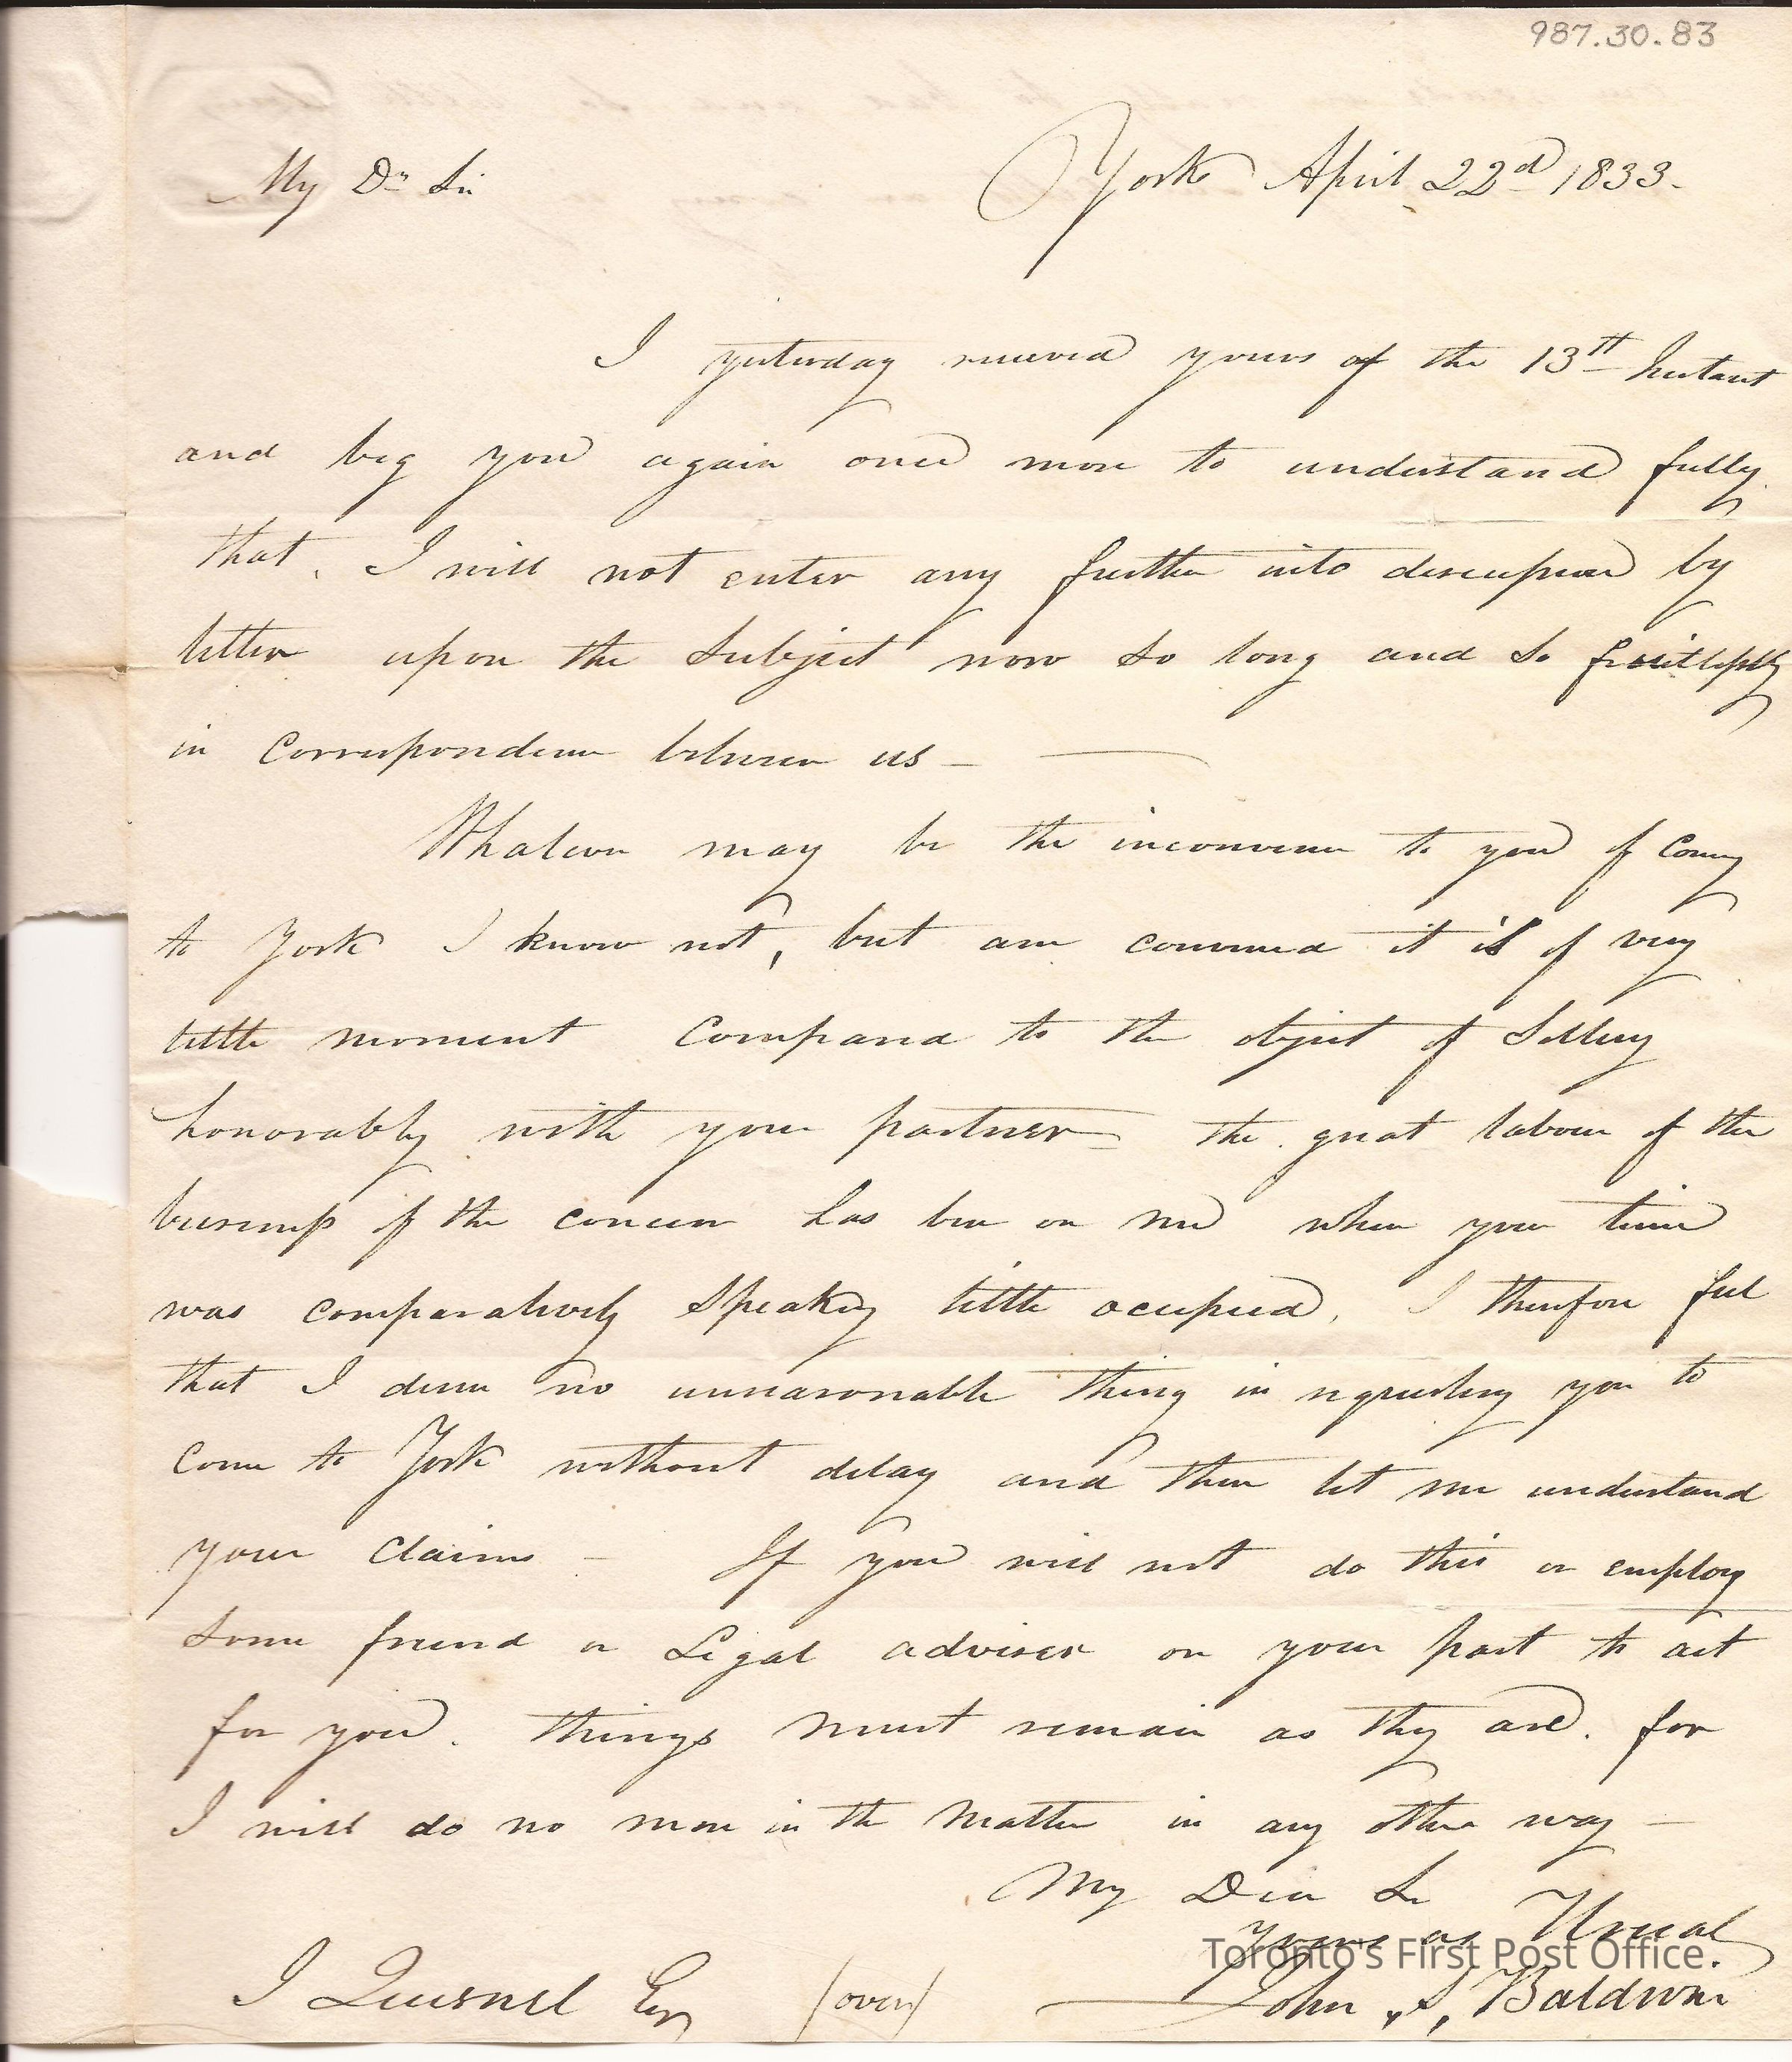 987.30.83
My Dr Sir
York April 22d 1833.
I yesterday received yours of the 13th Instant
and beg you again once more to understand fully
that, I will not enter any further into discussion by
letter upon the Subject now so long and so fruitlessly
in Correspondence between us —
Whatever may be the inconvenience to you of Coming
to York I know not, but am convinced it is of very
little moment Compared to the object of Settling
honorably with your partner — The great labour of the
business of the concern has been on me when your time
was comparatively Speaking little occupied, I therefore feel
that I deem no unreasonable thing in requesting you to
Come to York without delay and then let me understand
your Claims — If you will not do this or employ
Some friend or Legal adviser on your part to act
for you. things must remain as they are. for
I will do no more in the Matter in any other way —
My Dear Sir
Yours as Usual
Toronto's First Post Office.
John S, Baldwin
J Quesnel Esq (over)